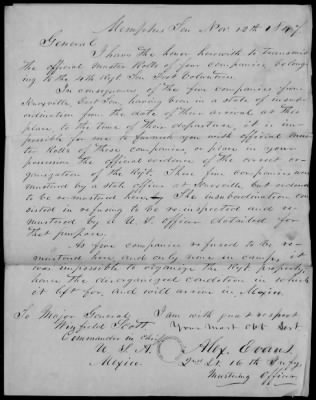 Memphis Ten Nov. 12th 1847.
General
I have the honor herewith to transmit
the official Muster Rolls of four companies belong-
ing to the 4th Regt Ten Foot Volunteers.
In consequence of the five companies from
Knoxville, East Ten, having been in a state of insub-
ordination from the date of their arrival at this
place, to the time of their departure, it is im-
possible for me to furnish you with official mus-
ter Rolls of these companies or place in your
possession the official evidence of the correct or-
ganization of the Regt. These five companies were
mustered by a state officer at Knoxville but ordered
to be re-mustered here. The insubordination con-
sisted in refusing to be re inspected and re-
mustered by a U.S. officer detailed for
that purpose.
As five companies refused to be re-
mustered here and only nine in camp, it
was impossible to organize the Regt properly,
hence the disorganized condition in which
it left for, and will arrive in Mexico.
I am with great respect
Your Most Obt Servt
To Major General
Winfield Scott
Commander in Chief
U S A
Mexico
Alex. Evans,
2nd Lt 16th Infy
Mustering Officer